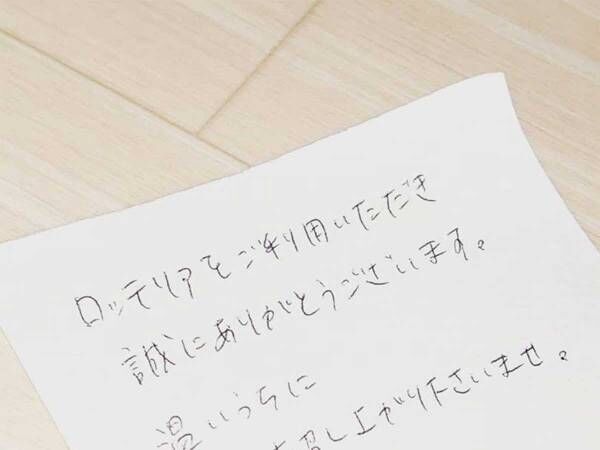 ロッテリアをご利用いただき
誠にありがとうございます。
温いうちに
召し上がり下さいませ。